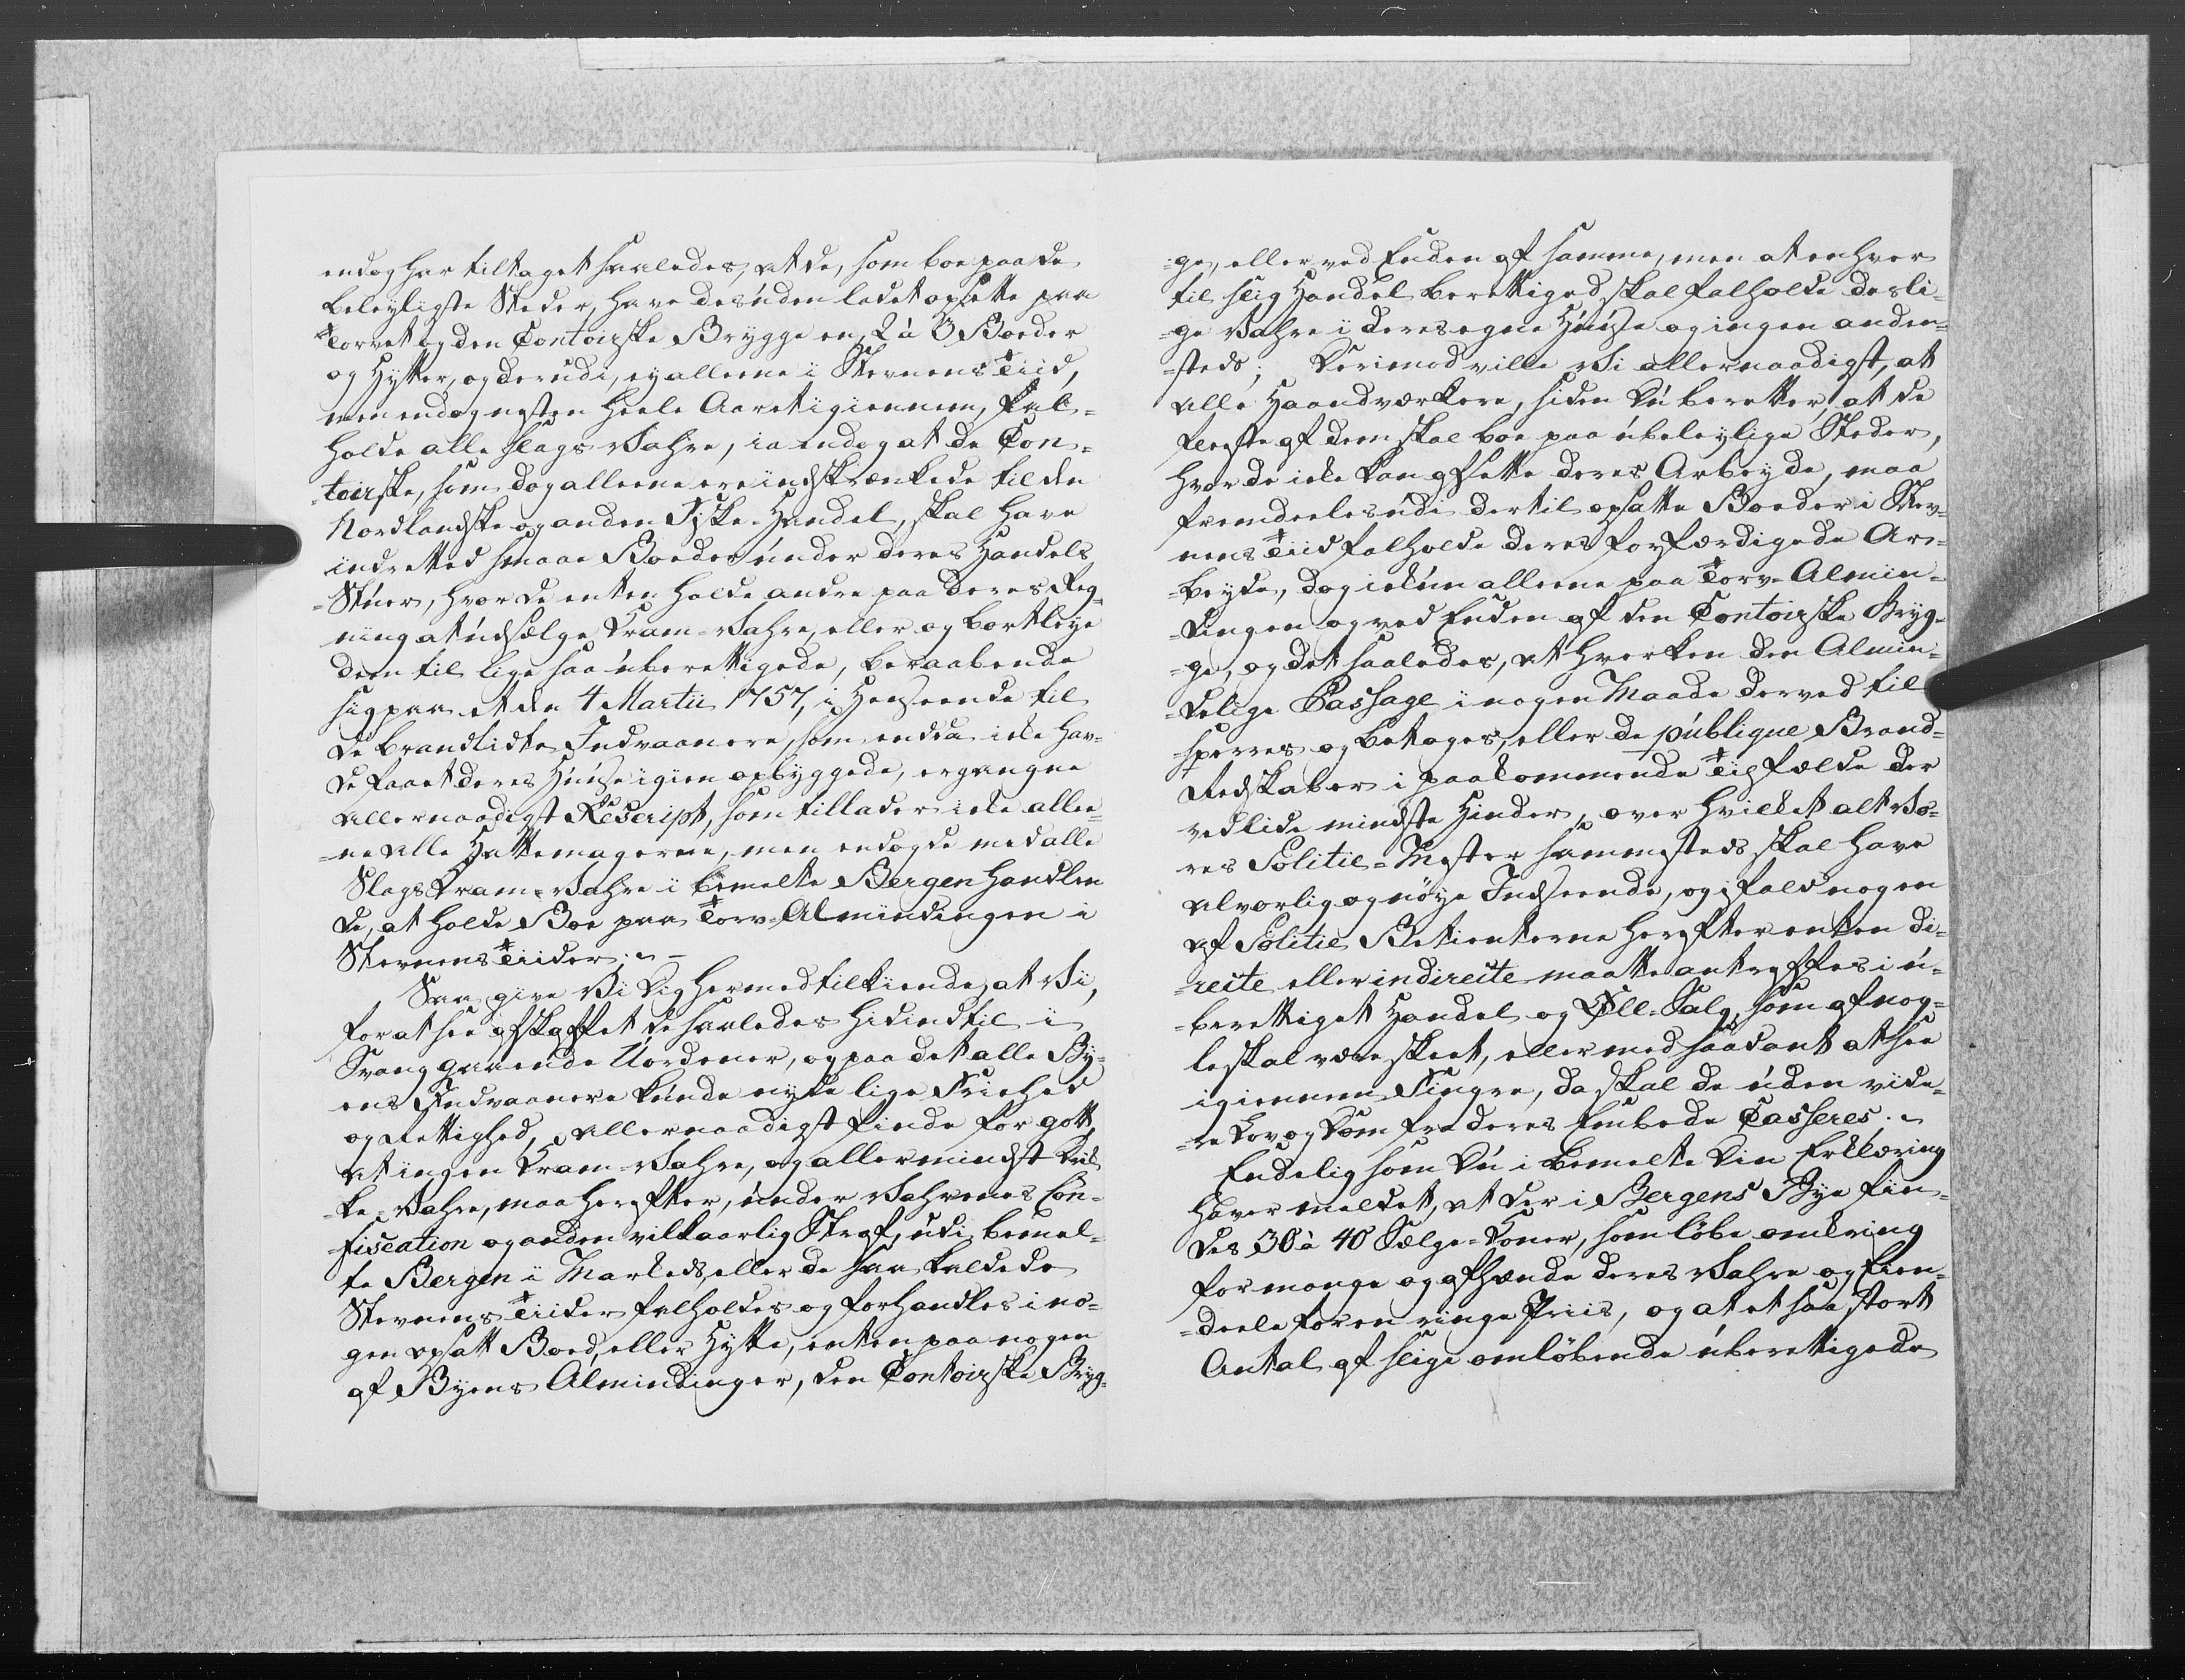 endog har tiltaget saaledes, at de, som boe paa de
beleyligste Steder, have desuden ladet opsette paa
Torvet og den Contoirske Brygge en, 2 à 3 Boeder
og Hytter, og derudi, ey alleene i Stevnens Tiid,
men endog nesten heele Aaret igiennem, fal-
holde alle slags Vahre, ia endog at de Con-
toirske, som dog alleene ere indskrænkede til den
Nordlandske og anden Fiske-Handel, skal have
indretted smaae Boeder under deres Handels
-Stuer, hvor de enten holde andre paa deres Reg-
ning at udsælge Kram-Vahre, eller og bortleye
dem til lige saa uberettigede, beraabende
sig paa et den 4 Martii 1757, i Henseende til
de brandlidte Indvaanere, som endda icke hav-
de faaet deres Huuse igien opbyggede, ergangne
allernaadigst Rescript, som tillader icke allee-
-ne alle Hattemagerne, men endog de med alle
Slags Kram-Vahre i bemelte Bergen handlen
de, at holde Boe paa Torv-Almindingen i
Stevnens Tiider; -
Saa give Vi dig hermed tilkiende, at Vi,
for at see afskaffet de saaledes hidindtil i
Svang gaaende Uordener, og paa det alle By-
ens Indvaanere kunde nyde lige Friehed
og Rettighed, allernaadigst finde for gott,
at ingen Kram-Vahre, og allermindst
-ke-Vahre, maa herefter, under Vahrenes Con-
fiscation og anden vilkaarlig Straf, udi bemel-
te Bergen i Markeds, eller de saa kaldede
Stevnens Tiider falholdes og forhandles i no-
gen opsatt Boed, eller Hytte, enten paa nogen
af Byens Almindinger, den Contoirske Bryg-
-ge, eller ved Enden af samme, men at enhver
til slig Handel berettiged skal falholde desli-
-ge Vahre i deres egne Huuse og ingen anden-
-steds; Derimod ville Vi allernaadigst, at
alle Haandværkere, siden du beretter, at de
fleeste af dem skal boe paa ubeleylige Steder,
hvor de icke kan afsette deres Arbeyde, maa
fremdeeles udi dertil opsatte Boeder i Stev-
nens Tiid falholde deres forfærdigede Ar-
-beyde, dog ickun alleene paa Torv-Almin-
-dingen og ved Enden af den Contoirske Bryg-
-ge, og det saaledes, at hverken den Almin-
-delige Passage i nogen Maade derved til
-sperres og betages, eller de publique Brand-
Redskaber i paakommende Tilfælde der
ved lide mindste Hinder, over hvilket alt Vo-
res Politie-Mester sammesteds skal have
alvorlig og nöye Indseende, og ifald nogen
af Politie Betienterne herefter enten di-
-recte eller indirecte maatte antreffes i u-
-berettiget Handel og Öll-Salg, som af nog-
le skal være skeet, eller med saadant at see
igiennem Fingre, da skal de uden vide-
-re Lov og Dom fra deres Embede Casseres. -
Endelig som du i bemelte din Erklæring
haver meldet, at der i Bergens Bye fin-
des 30 à 40 Sælge-Koner, som löbe omkring
for mange og afhænde deres Vahre og Eien-
-deele for en ringe Priis, og at et saa stort
Antal af slige omlöbende uberettigede